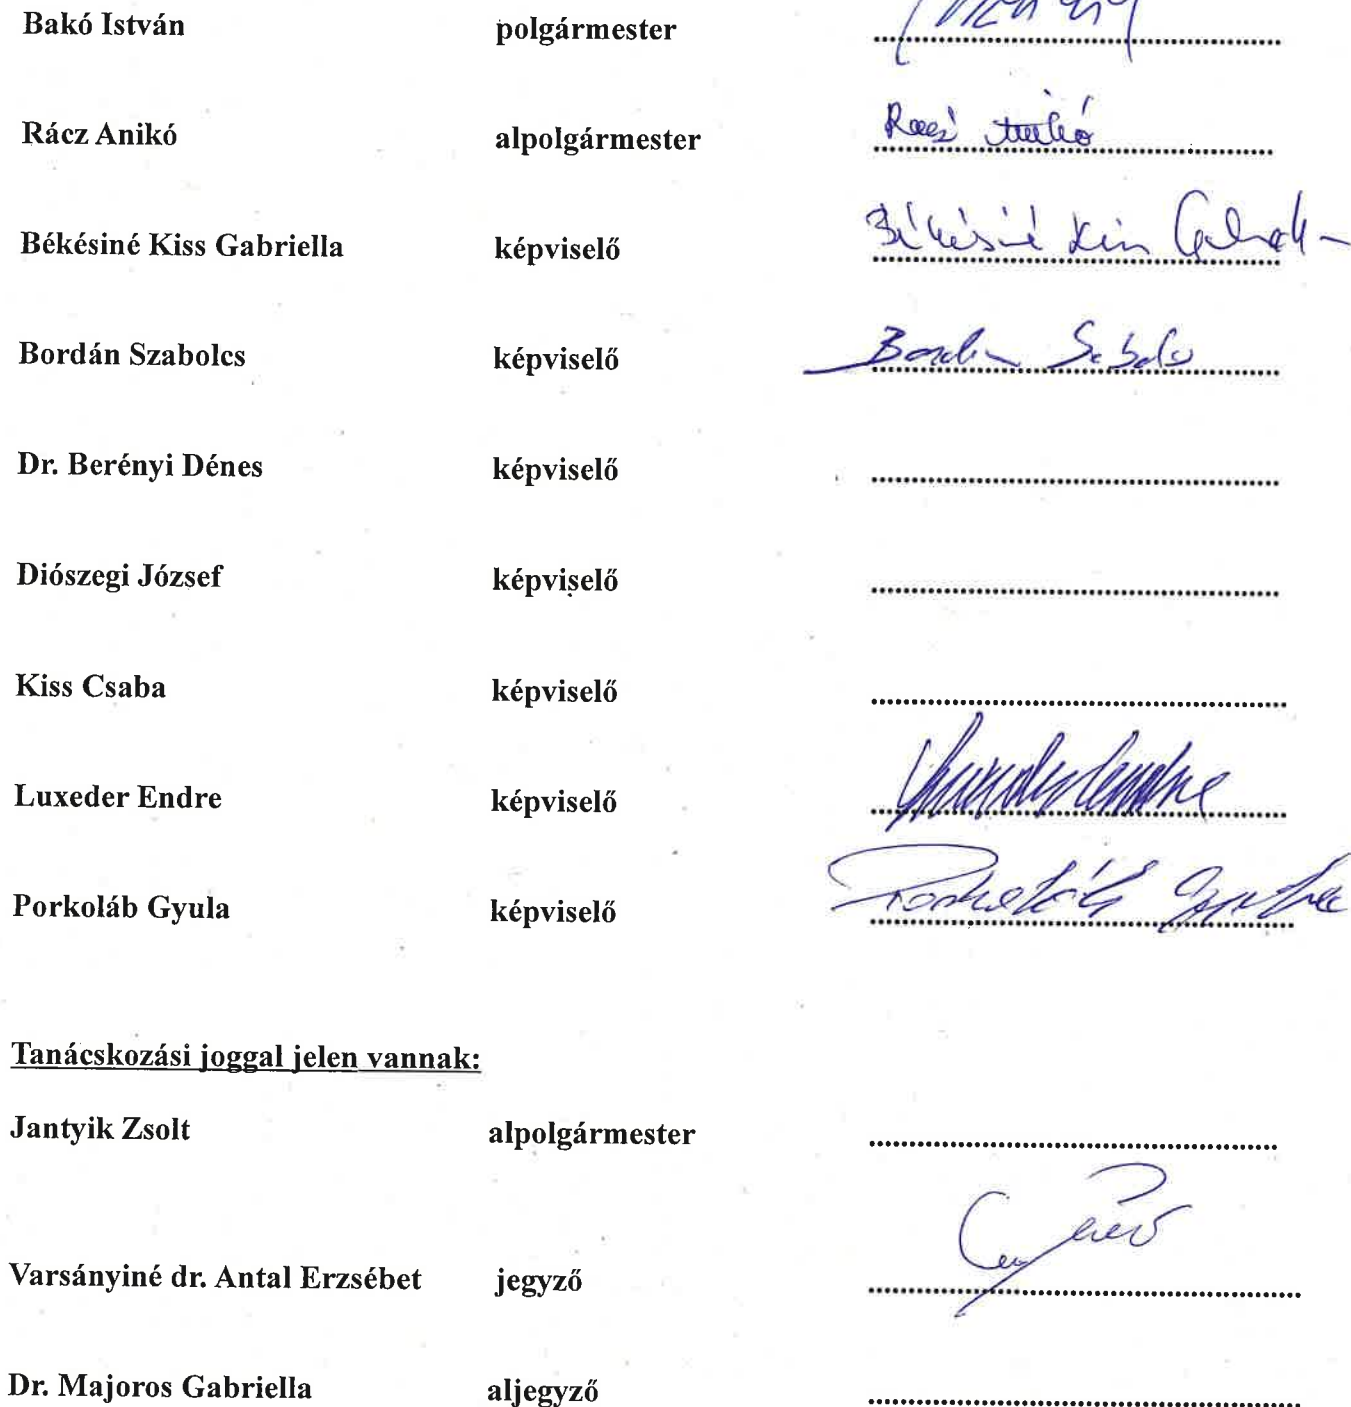 Bakó István polgármester
Rácz Anikó alpolgármester Rácz Anikó
Békésiné Kiss Gabriella képviselő Békésiné Kiss Gabriella
Bordán Szabolcs képviselő Bordán Szabolcs
Dr. Berényi Dénes képviselő
Diószegi József képviselő
Kiss Csaba képviselő
Luxeder Endre képviselő Luxeder Endre
Porkoláb Gyula képviselő Porkoláb Gyula
Tanácskozási joggal jelen vannak:
Jantyik Zsolt alpolgármester
Varsányiné dr. Antal Erzsébet jegyző
Dr. Majoros Gabriella aljegyző